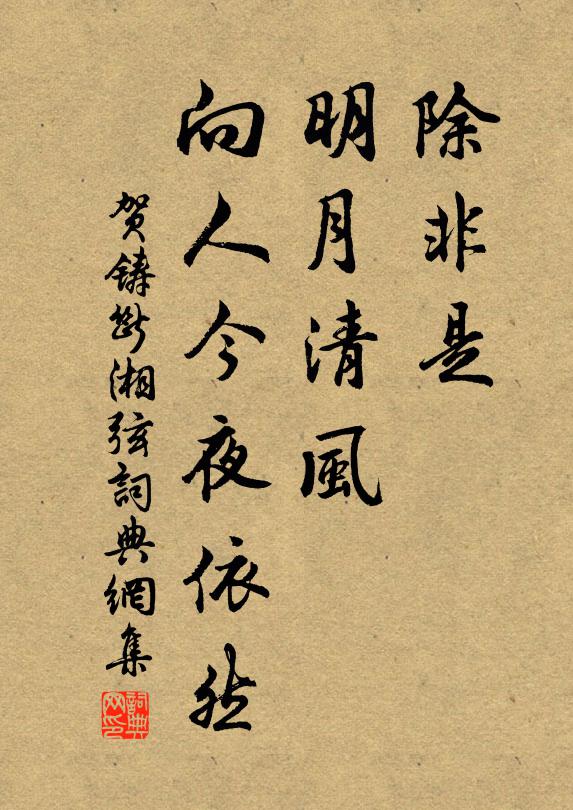 除非是
明月清風
向人今夜依然
賀鑄斷湘弦詞典網集
詞典网印